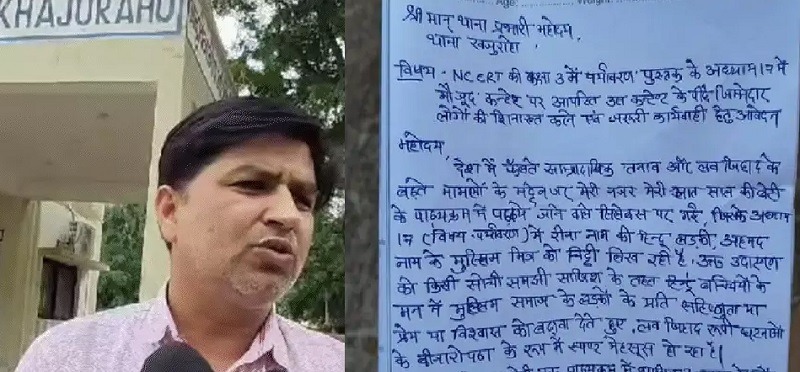 KHAJURAHO
Age:
श्रीमान् थाना प्रभारी महोदय
थाना खजुराहो,
विषय - NCERT की कक्षा 3 में पर्यावरण पुस्तक के अध्याय 17 में
मौजूद कन्टेन्ट पर आपत्ति उस कन्टेन्ट के पीछे जिम्मेदार
लोगों की शिनाख्त करने एवं जरूरी कार्यवाही हेतु आवेदन
महोदय,
देश में फैलते साम्प्रदायिक तनाव और लव जिहाद के
बढ़ते मामलों के मद्देनजर मेरी नजर मेरी आठ साल की बेटी
के पाठ्यक्रम में पढ़ाये जाने वाले सिलेबस पर गई जिसके अध्याय
17 (विषय-पर्यावरण) में रीना नाम की हिन्दू लड़की, अहमद
नाम के मुस्लिम मित्र को चिट्ठी लिख रही है, उक्त उदाहरण
को किसी सोची समझी साजिश के तहत हिन्दू बच्चियों के
मन में मुस्लिम समाज के लड़कों के प्रति या
प्रेम या विश्वास को बढ़ावा देते हुए, लव जिहाद रूपी घटनाओं
के बीजारोपण के रूप में स्पष्ट महसूस हो रहा है।